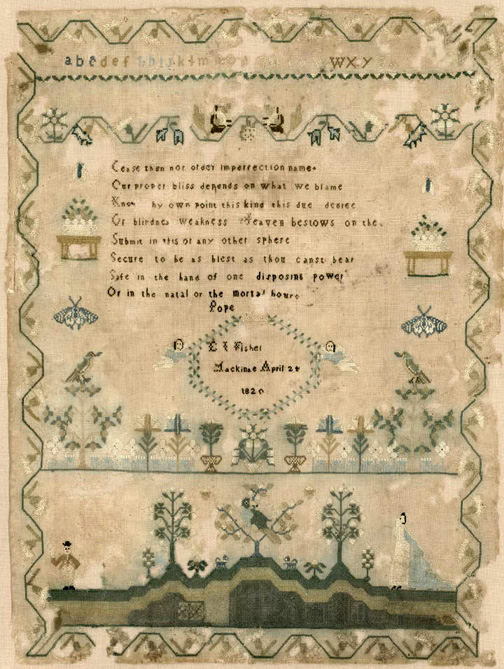 abcdef hijklm WXY
Cease then nor order imperfection name
Our proper bliss depends on what we blame
Know hy own point this kind this due degree
Of blindnes weakness Heaven bestows on the
Submit in this or any other sphere
Secure to be as blest as thou canst bear
Safe in the hand of one disposing power
Or in the natal or the mortal houre
Pope
E Fisher
Mackinac April 24
182